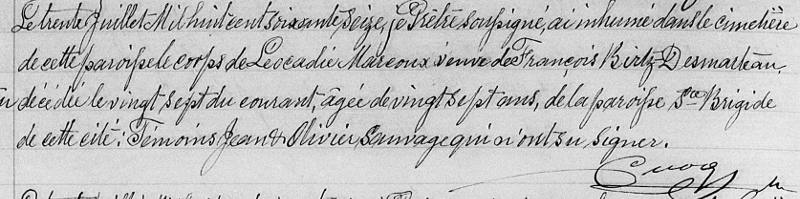 Le trente Juillet Mil huit cent soixante, seize, je Prêtre soussigné, ai inhumé dans le cimetière
de cette paroisse le corps de Léocadie Marcoux veuve de François Birtz Desmarteau,
décédée le vingt sept du courant, âgée de vingt sept ans, de la paroisse Ste Brigide
de cette cité: Témoins Jean & Olivier Sauvage qui n'ont su signer.
Cuoq